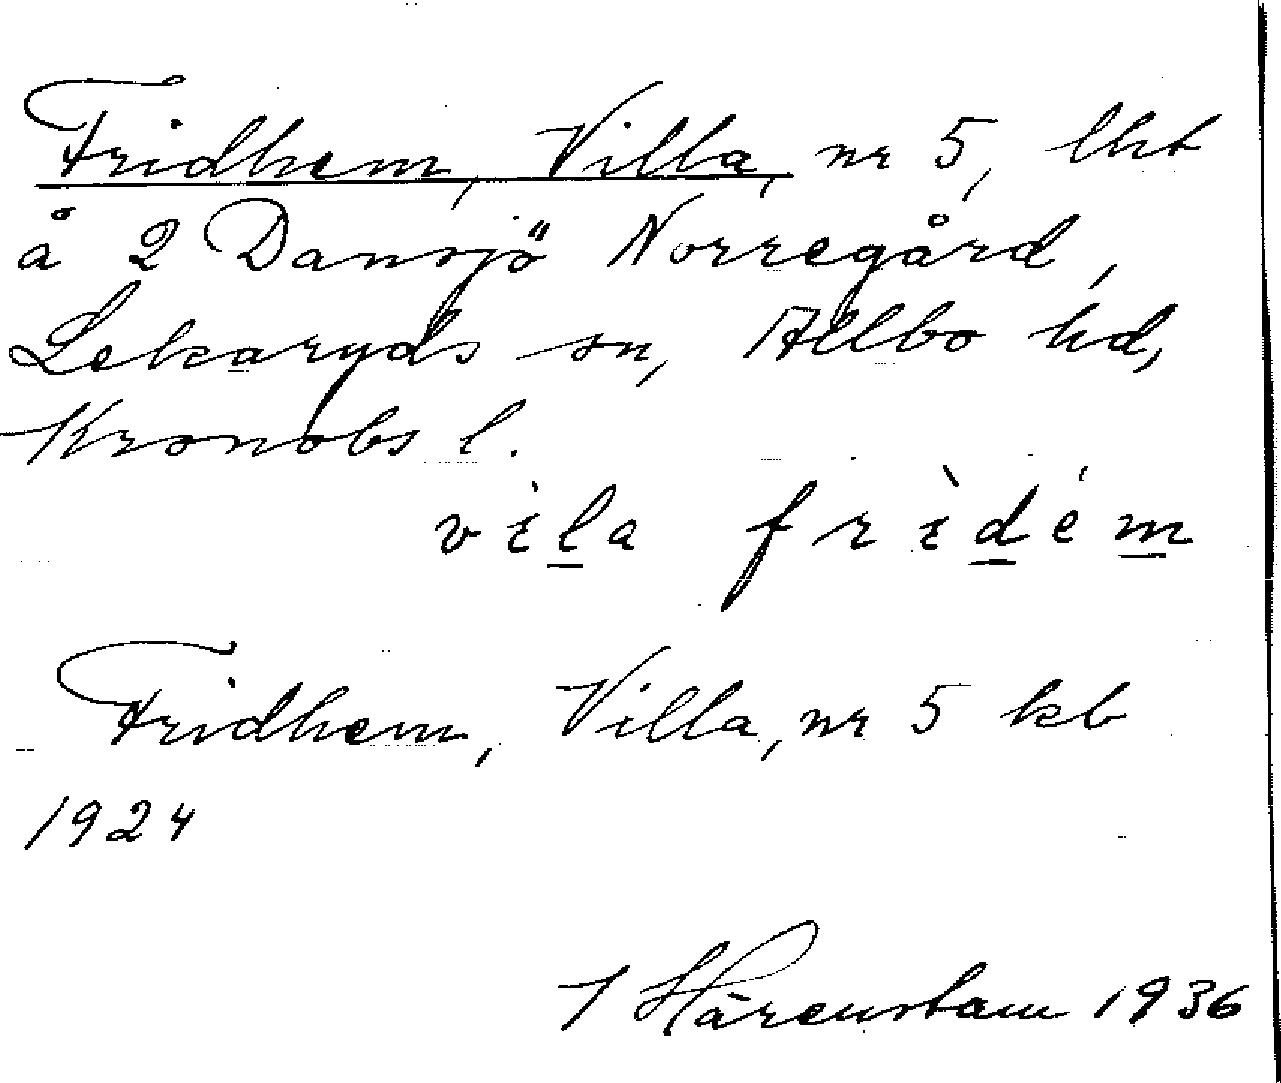 Fridhem, Villa, nr 5, lht
å 2 Dansjö Norregård,
Lekaryds sn, Allbo hd,
Kronobs l.
vìla frìdém
Fridhem, Villa, nr 5 kb
1924
I Härenstam 1936